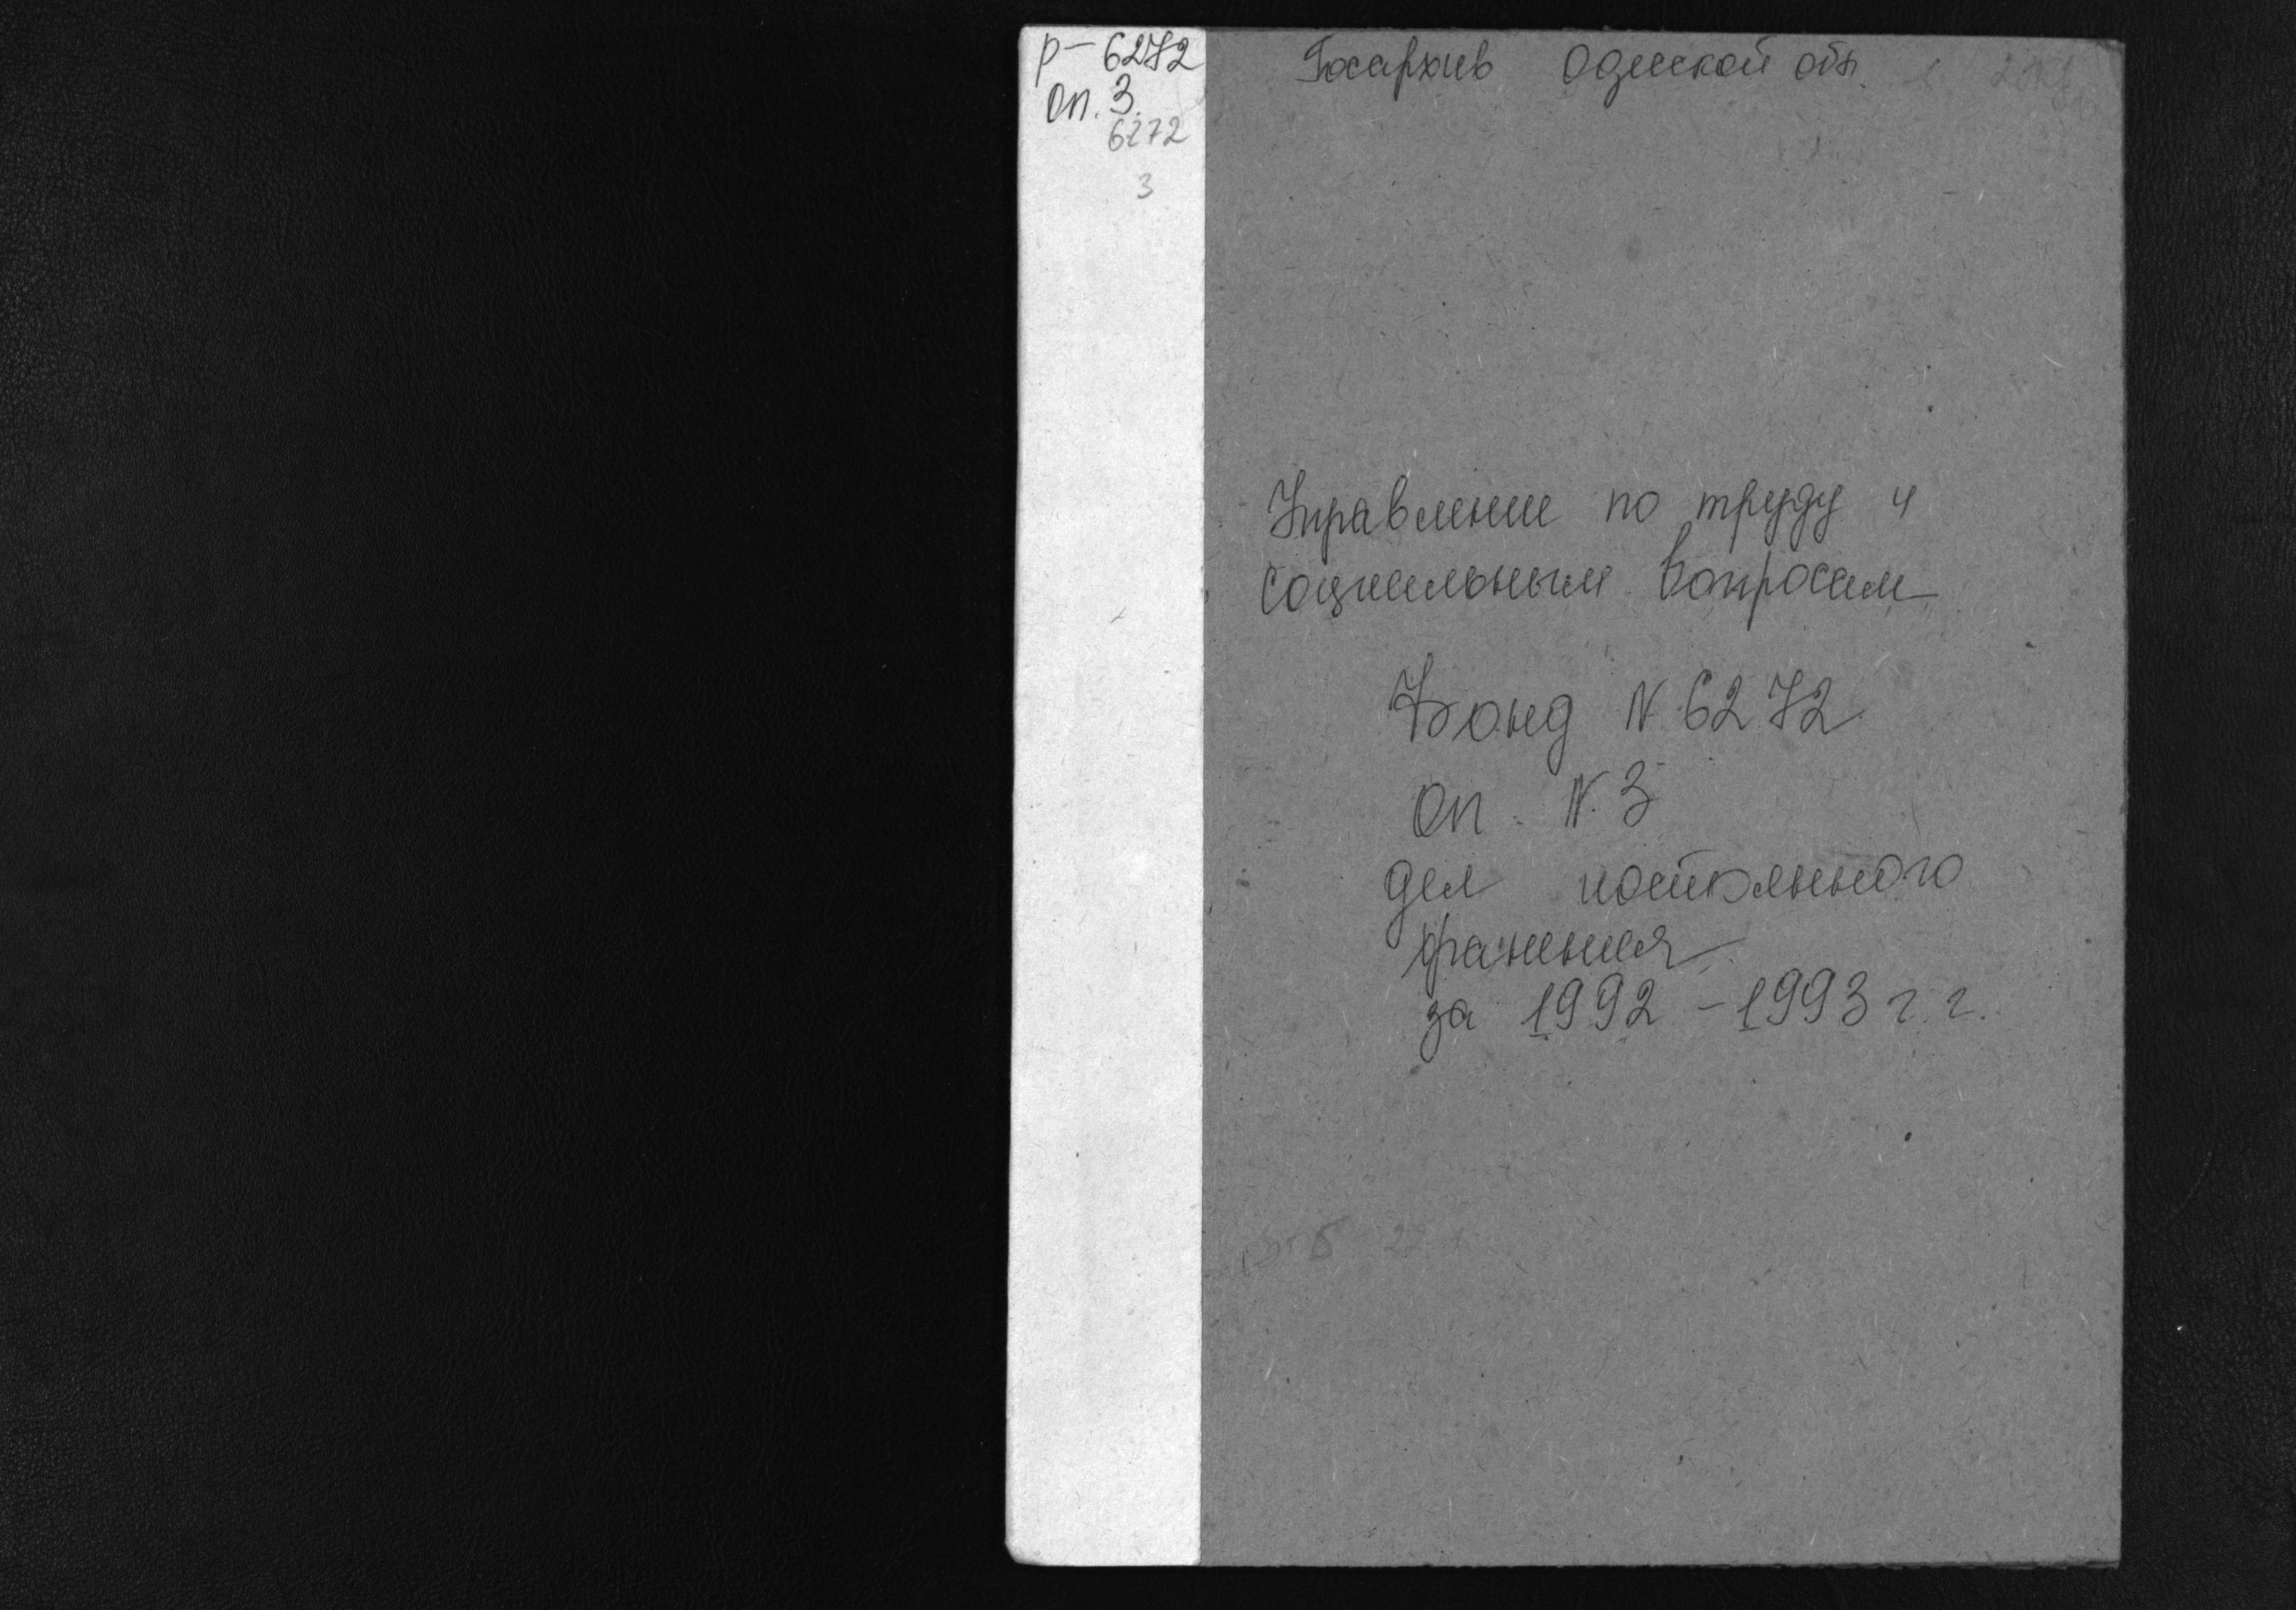 Р-6272
оп. 3.
6272
3
Госархив Одесской обл.
Управление по труду и
социальным вопросам
Фонд N 6272
оп. N. 3
дел постоянного
хранения
за 1992 - 1993 г. г.